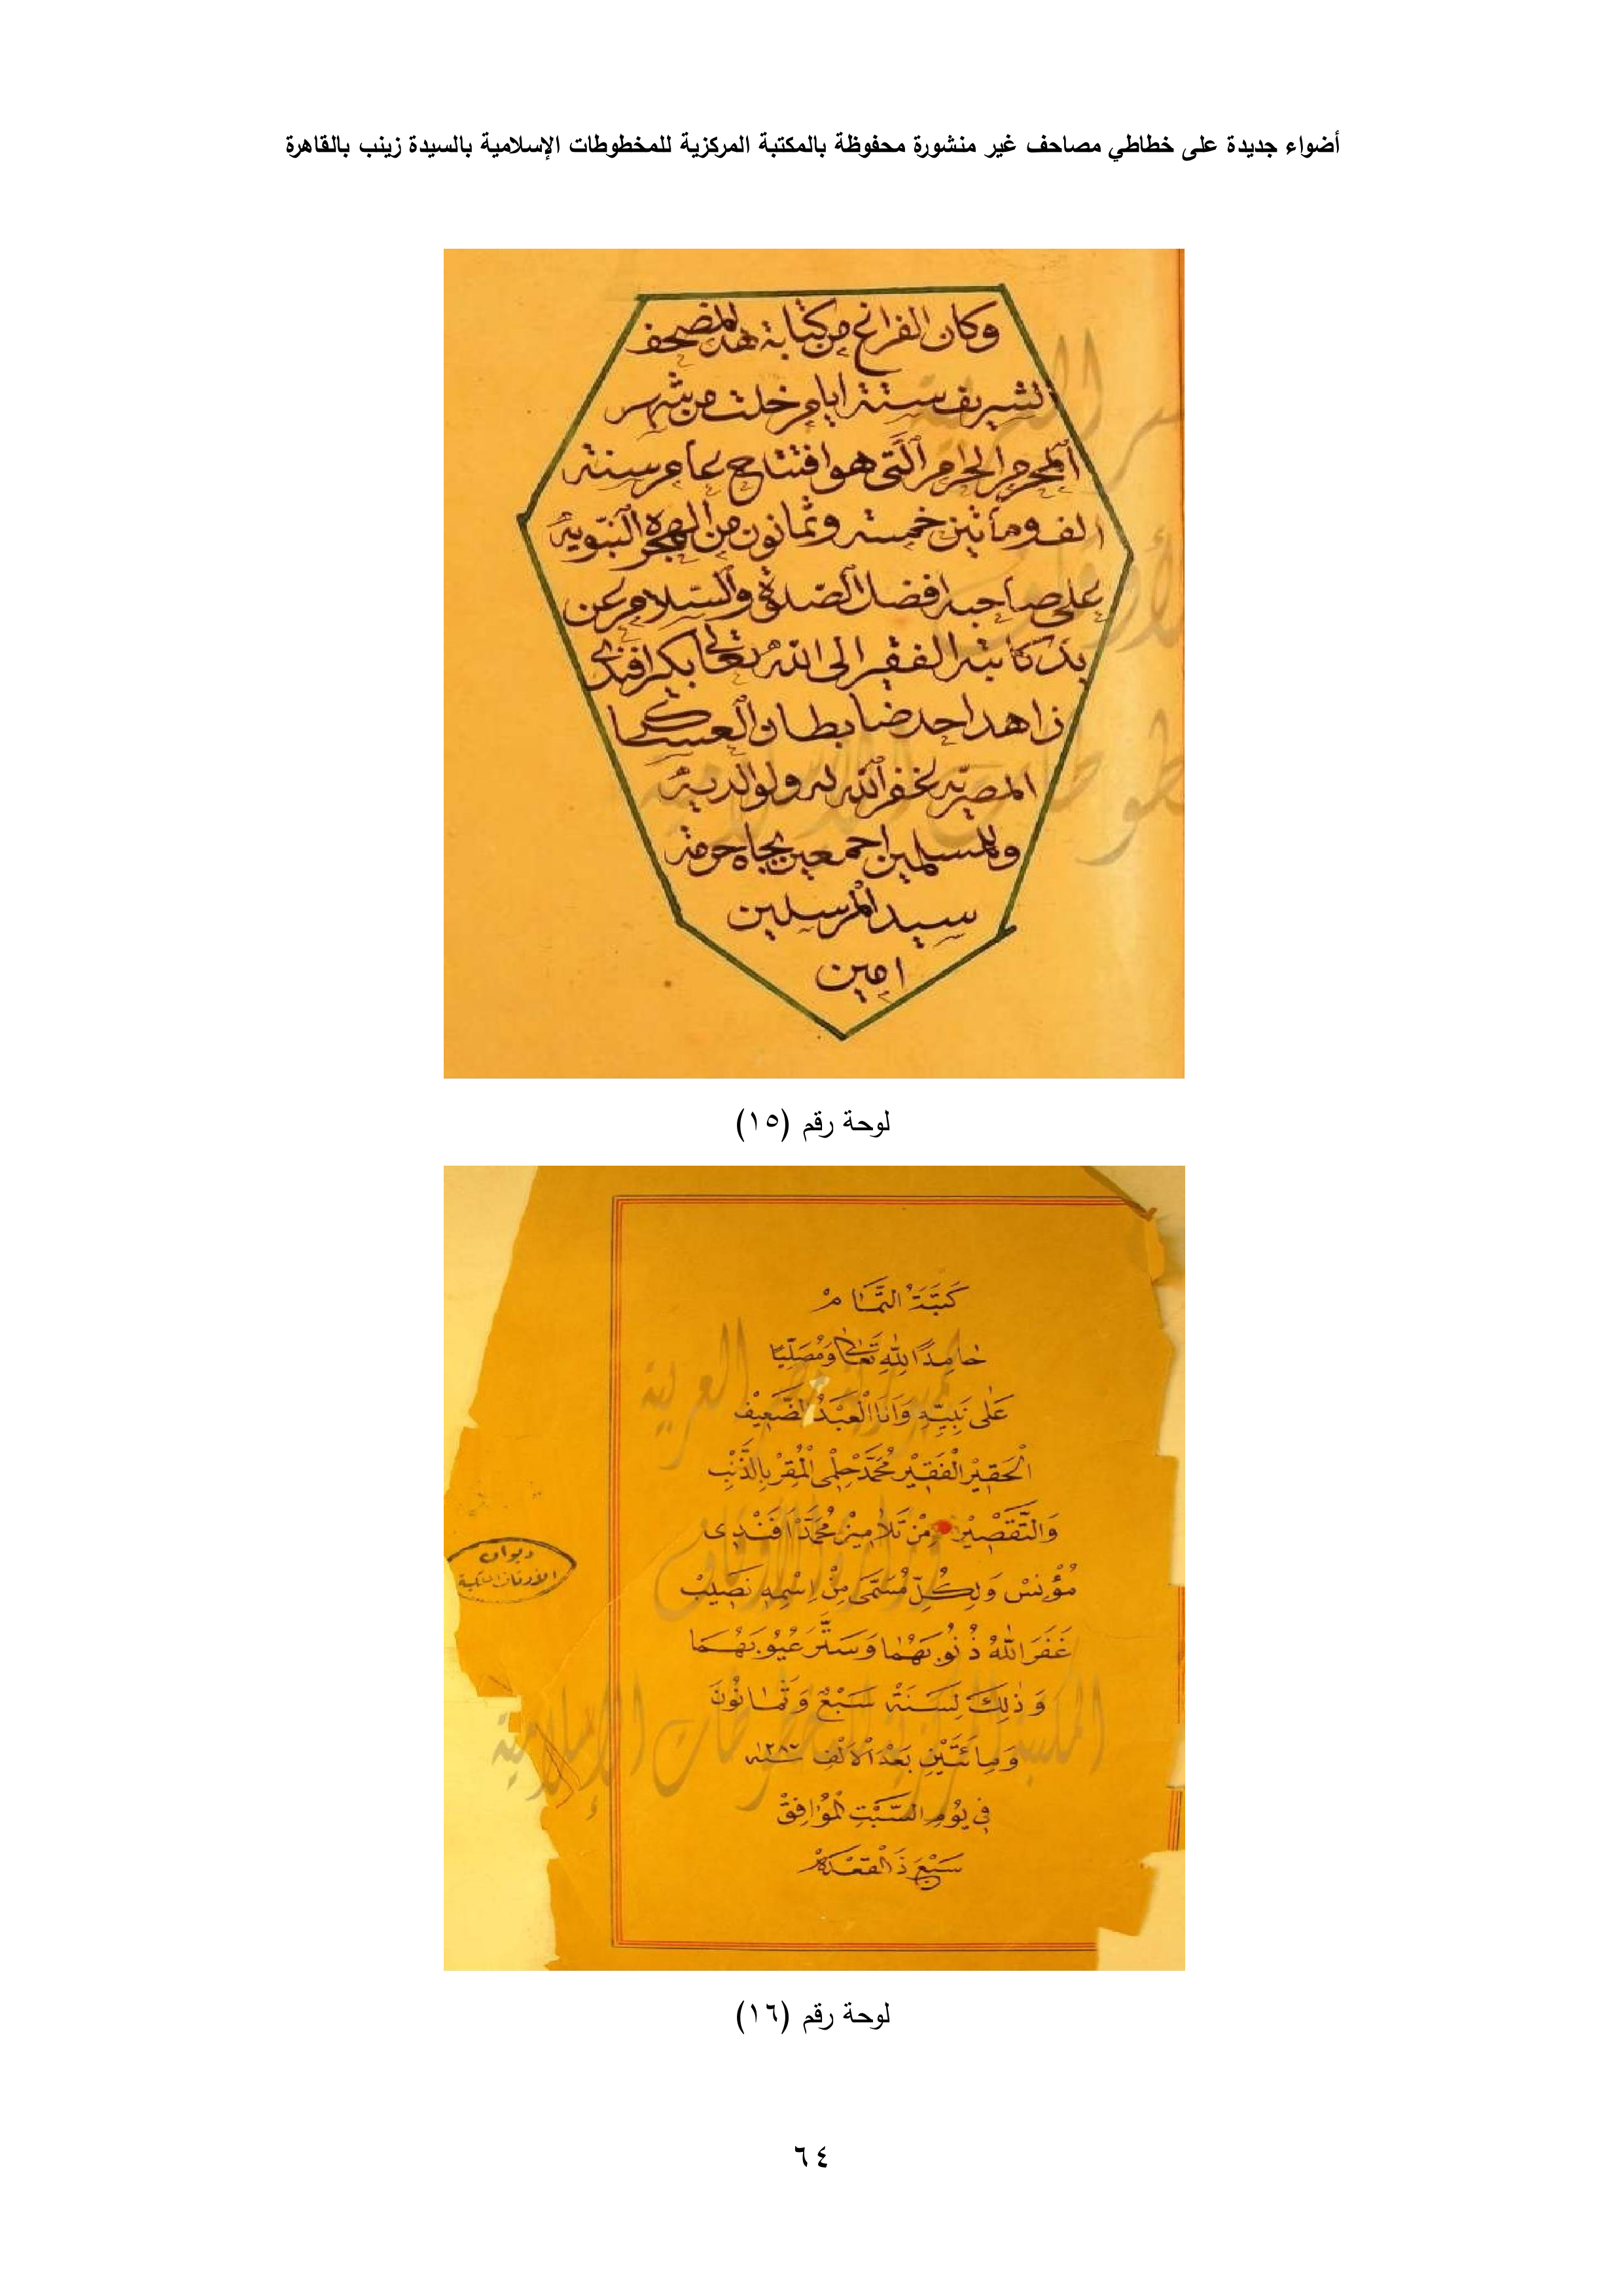 أضواء جديدة على خطاطي مصاحف غير منشورة محفوظة بالمكتبة المركزية للمخطوطات الإسلامية بالسيدة زينب بالقاهرة
وكان الفراغ من كتابة هذا المصحف
الشريف ستة ايام خلت من شهر
المحرم الحرام الّتى هو افتتاح عام سنة
الف ومأتين خمسة وثمانون من الهجرة النّبوية
على صاحبه افضل الصّلوة والسّلام عن
يد كاتبه الفقير الى الله تعالى بكر افندى
زاهد احد ضابطان العساكر
المصريّة غفر الله له ولوالديه
وللمسلمين اجمعين بجاه حرمة
سيد المرسلين
امين
لوحة رقم (١٥)
كَتَبَةُ التَّمَامْ
حَامِدًا لِلّٰهِ تَعَالٰى وَمُصَلِّيًا
عَلٰى نَبِيِّهِ وَاَنَا الْعَبْدُ الضَّعِيْفْ
الْحَقِيْرْ الْفَقِيْرْ مُحَمَّدْ حِلْمِى الْمُقِرْ بِالذَّنْبِ
وَالتَّقْصِيْرْ مِنْ تَلَامِيْزْ مُحَمَّدْ اَفَنْدِى
مُؤْنِسْ وَلِكُلِّ مُسَمَّى مِنْ اِسْمِهِ نَصِيبْ
غَفَرَ اللّٰهُ ذُنُوبَهُمَا وَسَتَّرَ عُيُوبَهُمَا
وَذٰلِكَ لِسَنَةْ سَبْعْ وَثَمَانُونَ
وَمِائَتَيْنِ بَعْدَ الْاَلْفِ سنه ١٢٨٧
فِى يُومِ السَّبْتِ الْمُوَافِقْ
سَبْعَ ذَالْقَعْدَهْ
ديوان
الأوقاف الملكية
لوحة رقم (١٦)
٦٤